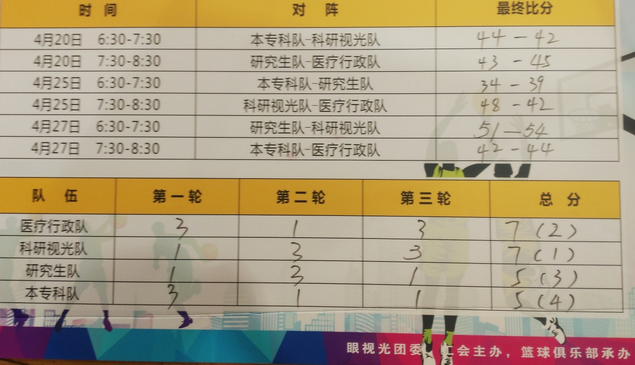 时间 对阵 最终比分
4月20日 6:30-7:30 本专科队-科研视光队 44-42
4月20日 7:30-8:30 研究生队-医疗行政队 43-45
4月25日 6:30-7:30 本专科队-研究生队 34-39
4月25日 7:30-8:30 科研视光队-医疗行政队 48-42
4月27日 6:30-7:30 研究生队-科研视光队 51-54
4月27日 7:30-8:30 本专科队-医疗行政队 42-44
队伍 第一轮 第二轮 第三轮 总分
医疗行政队 3 1 3 7(2)
科研视光队 1 3 3 7(1)
研究生队 1 3 1 5(3)
本专科队 3 1 1 5(4)
眼视光团委 工会主办，篮球俱乐部承办